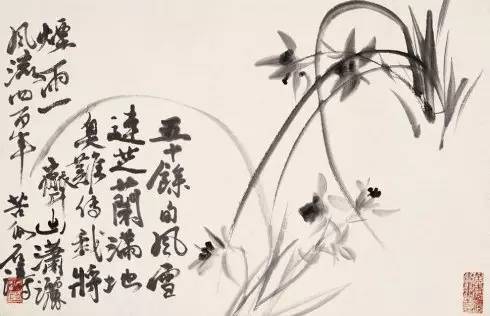 五十餘風雪
連芝蘭滿地
臭難傳我將
煙雨一
齊出瀟灑
風流四百年
苦瓜石濤